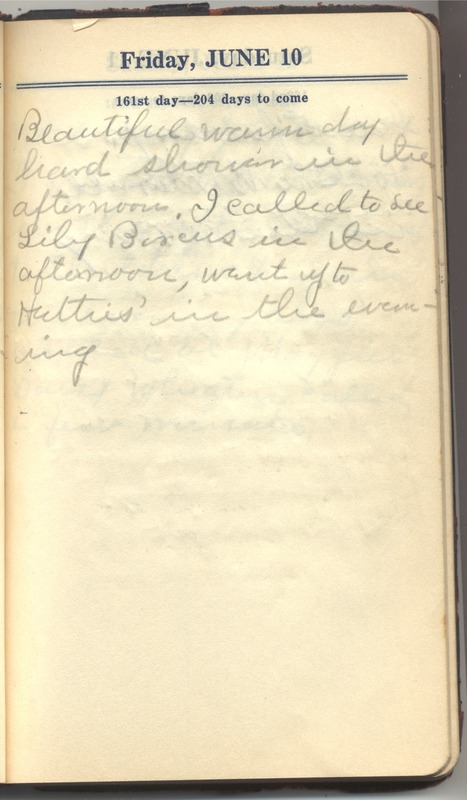 Friday, JUNE 10
161st day—204 days to come
Beautiful warm day
hard shower in the
afternoon. I called to see
Lily in the
afternoon, went up to
Hatties' in the even-
ing